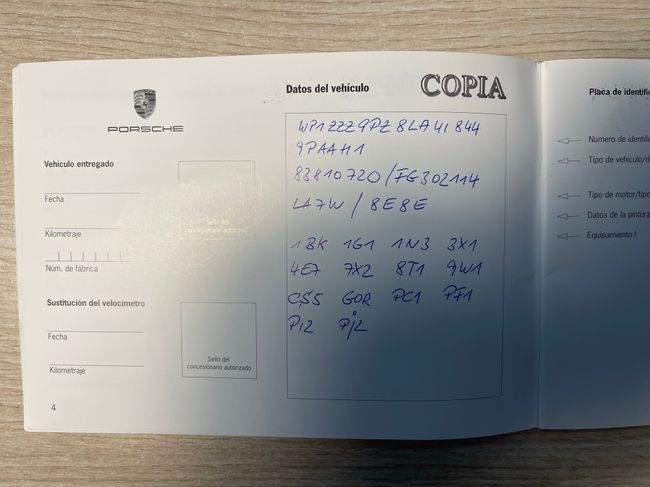 PORSCHE
Vehículo entregado
Fecha
Kilometraje
Núm. de fábrica
Sello del
concesionario autorizado
Sustitución del velocímetro
Fecha
Kilometraje
Sello del
concesionario autorizado
4
Datos del vehículo
COPIA
WP1ZZZ9PZ8LA41844
9PAAH1
83810720/FG302114
LA7W / 8E8E
1BK 1G1 1N3 3X1
4E7 7X2 8T1 9W1
C55 G0R PC1 PF1
P12 PJ2
Placa de identific
Número de identifi
Tipo de vehículo/d
Tipo de motor/tipo
Datos de la pintura
Equipamiento I